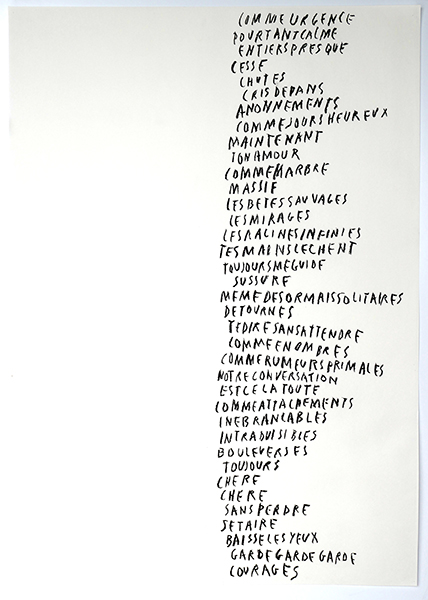 COMMEURGENCE
POURTANTCALME
ENTIERSPRESQUE
CESSE
CHUTES
CRISDEDANS
ANONNEMENTS
COMMEJOURSHEUREUX
MAINTENANT
TONAMOUR
COMMEMARBRE
MASSIF
LESBETESSAUVAGES
LESMIRAGES
LESRALINESINFINIES
TESMAINSLECHENT
TOUJOURSMEGUIDE
SUSSURE
MEMEDESORMAISSOLITAIRES
DETOURNES
TEDIRESANSATTENDRE
COMMEENOMBRES
COMMERUMEURSPRIMALES
NOTRECONVERSATION
ESTCELATOUTE
COMMEATTACHEMENTS
INEBRANLABLES
INTRADUISIBLES
BOULEVERSES
TOUJOURS
CHERE
CHERE
SANSPERDRE
SETAIRE
BAISSELESYEUX
GARDEGARDEGARDE
COURAGES